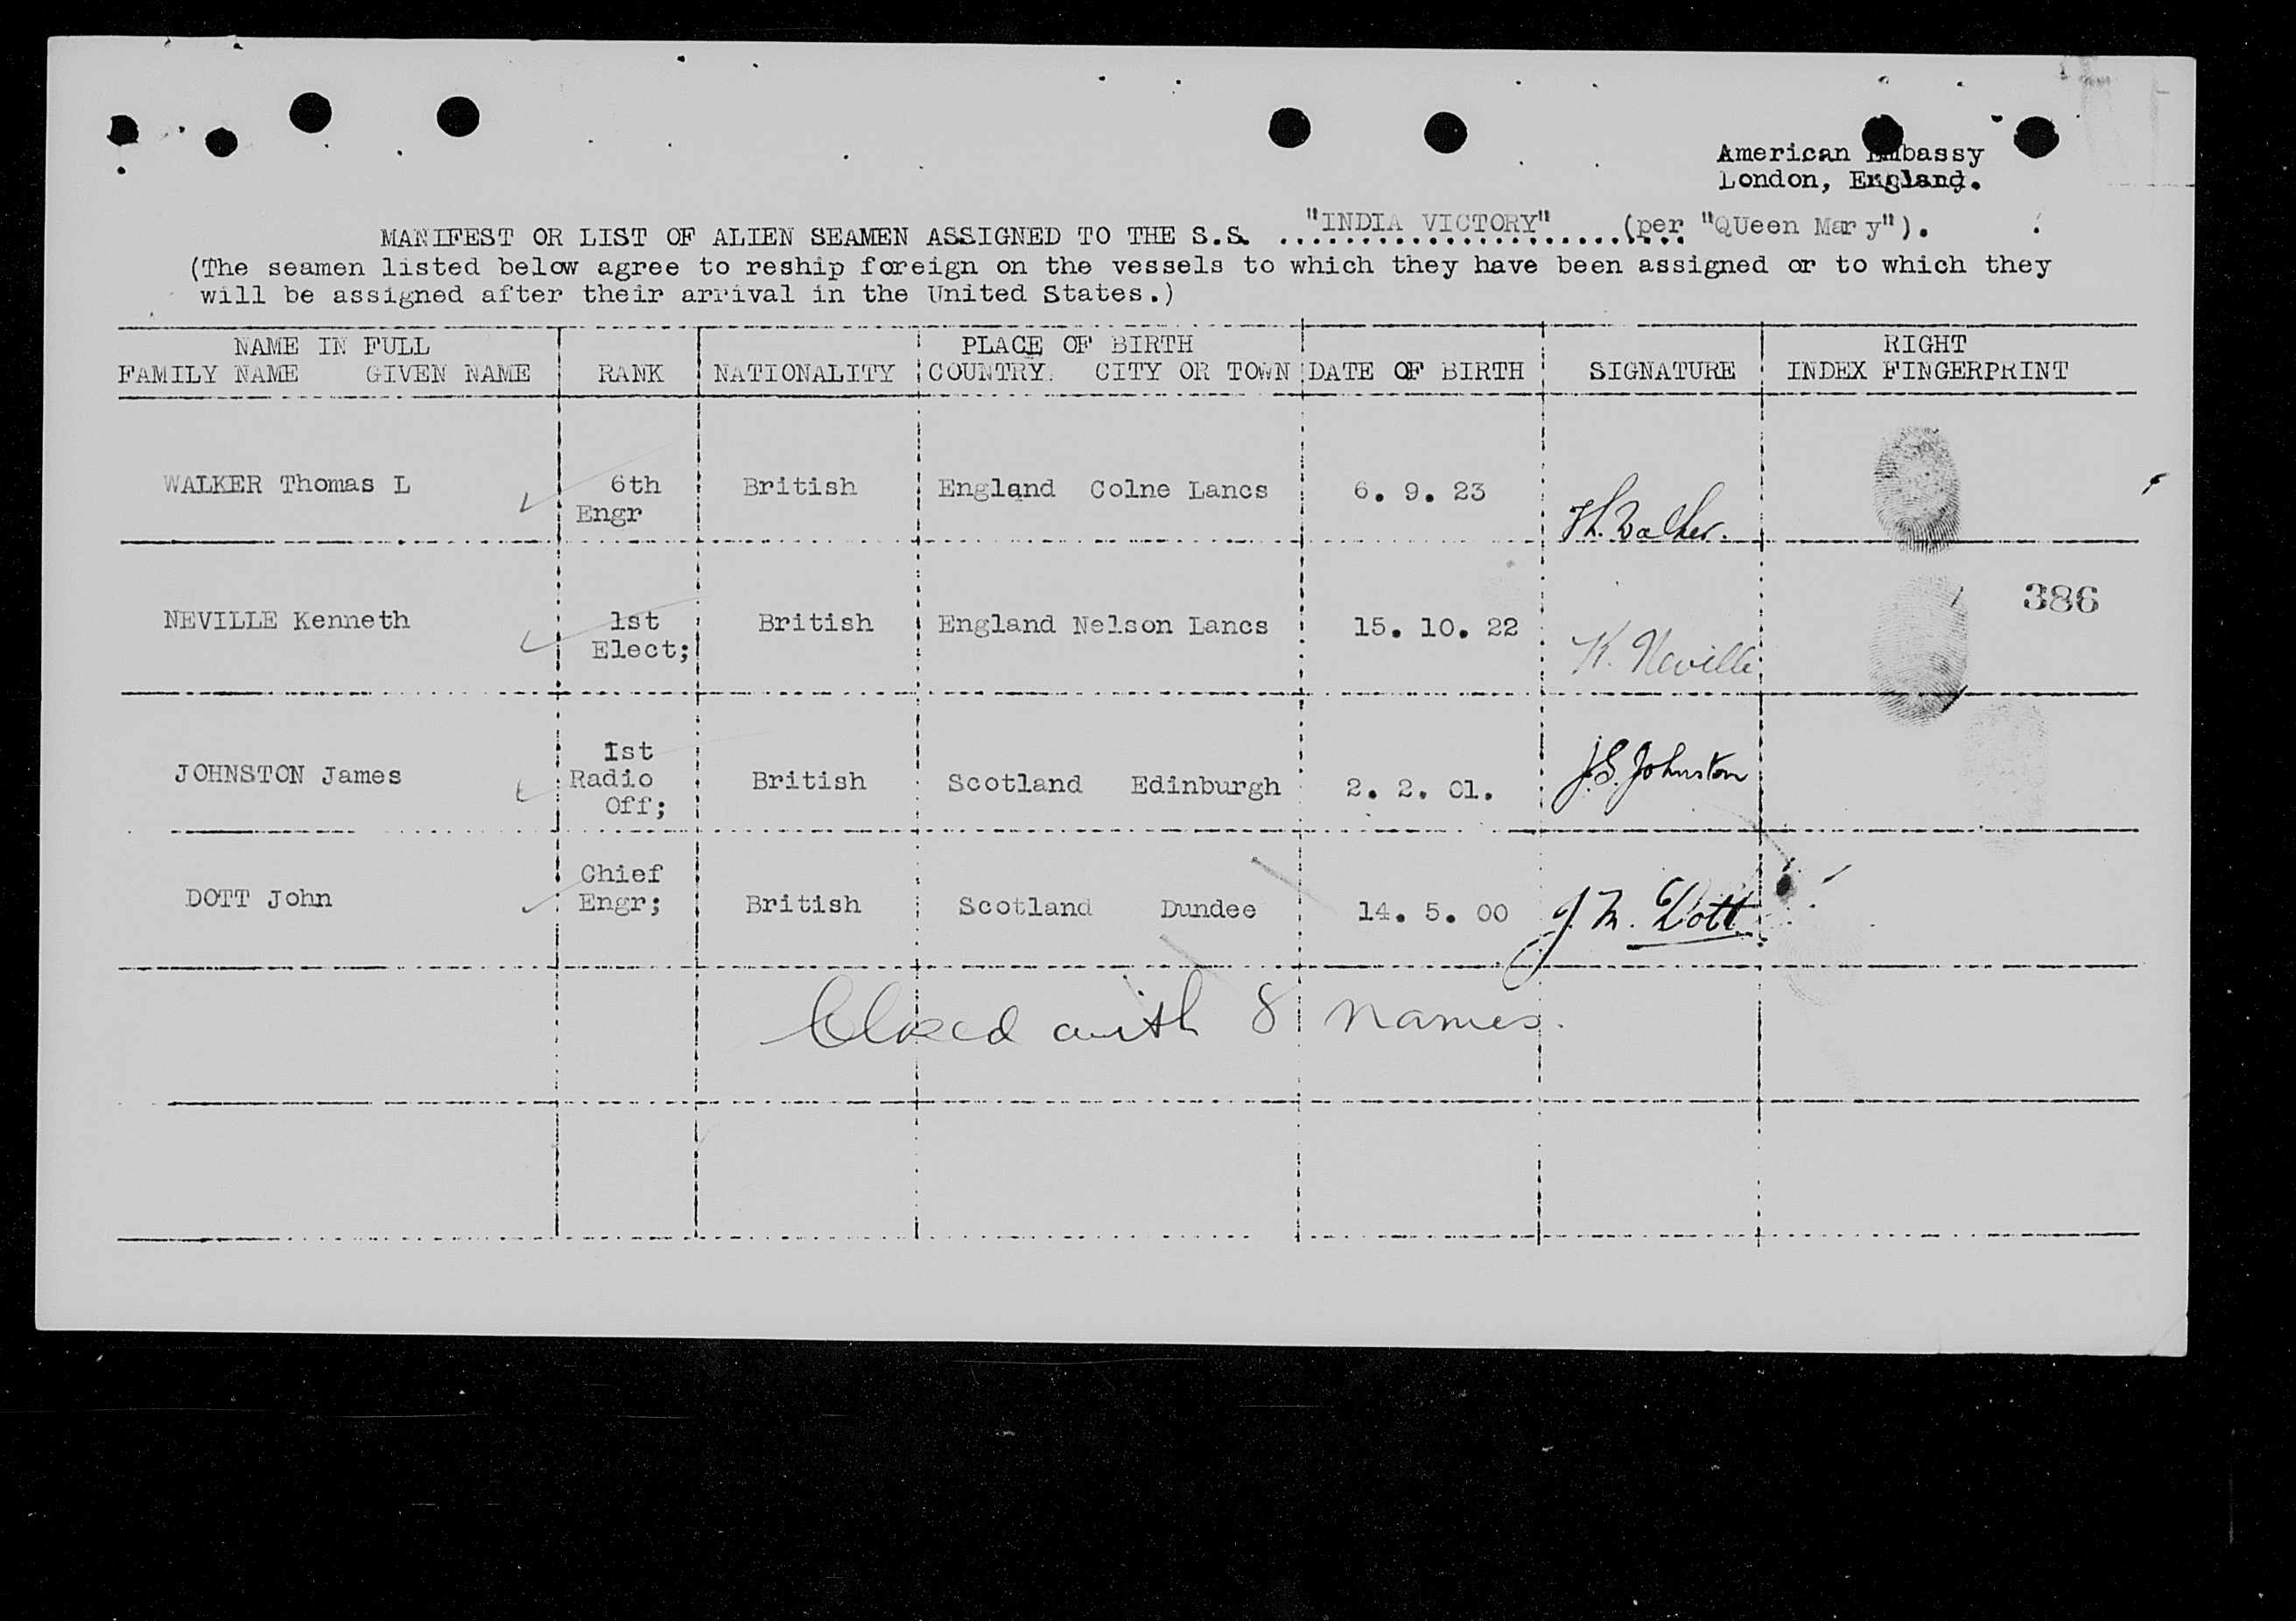 American Embassy
London, England.
MANIFEST OR LIST OF ALIEN SEAMEN ASSIGNED TO THE S.S. "INDIA VICTORY" (per "QUeen Mar y").
(The seamen listed below agree to reship foreign on the vessels to which they have been assigned or to which they
will be assigned after their arrival in the United States.)
NAME IN FULL PLACE OF BIRTH RIGHT
FAMILY NAME GIVEN NAME RANK NATIONALITY COUNTRY. CITY OR TOWN DATE OF BIRTH SIGNATURE INDEX FINGERPRINT
WALKER Thomas L 6th British England Colne Lancs 6. 9. 23
Engr
Th. Walker.
386
NEVILLE Kenneth 1st British England Nelson Lancs 15. 10. 22
Elect; K. Neville
1st
JOHNSTON James Radio British Scotland Edinburgh 2. 2. 01. J.S. Johnston
Off;
Chief
DOTT John Engr; British Scotland Dundee 14. 5. 00 J. M. Dott
Closed with 8 names.